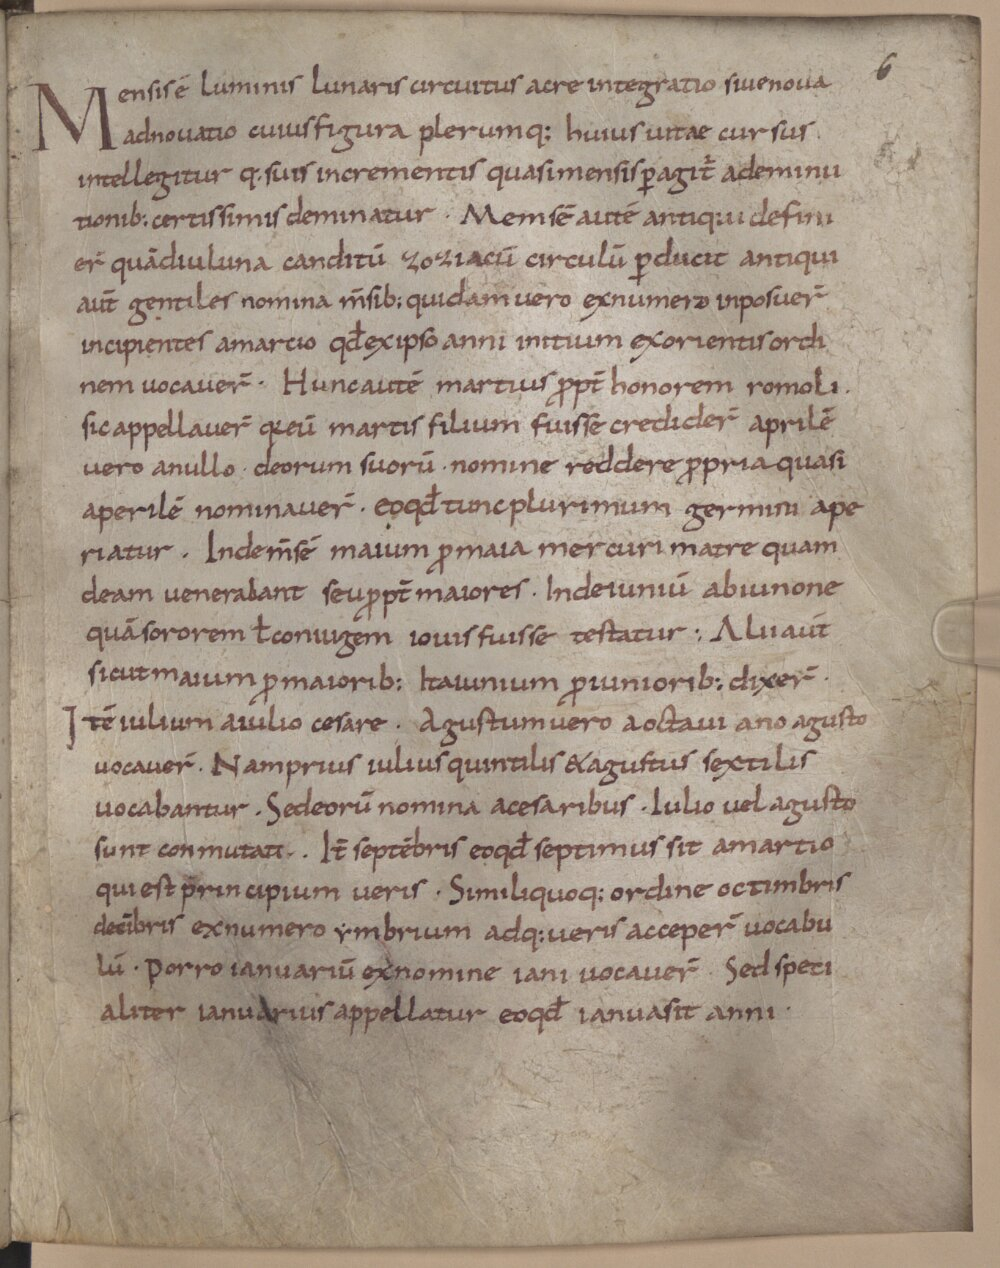 6
Mensis ē luminis lunaris circuitus acre integratio sive nova
ad novatio cuius figura plerumq; huius vitae cursus
intellegitur q; suis incrementis quasi mensis ꝑagit̄ ademinu
tionib; certissimis deminatur · Memsē autē antiqui defini
er̄ quādiu luna canditū zoziacū circulū ꝑducit antiqui
aut̄ gentiles nomina m̄sib; quidam vero ex numero inposuer̄
incipientes amarcio qd̄ ex ipso anni initium exorientis ordi
nem vocaver̄ · Hunc autē martius ꝓpt̄ honorem romoli ·
sic appellaver̄ q; eū martis filium fuissē credider̄ aprilē
vero a nullo · deorum suorū · nomine reddere ꝓpria quasi
aperilē nominaver̄ · eo qd̄ tunc plurimum germini ape
riatur · Inde m̄sē maium ꝓ maia mercuri matre quam
deam venerabant seu ꝓpt̄ maiores · Inde iuniū ab iunone
quā sororem ł coniugem iovis fuissē testatur : Alii aut̄
sicut maium ꝓ maiorib; Ita iunium ꝓ iuniorib; dixer̄ ·
Itē iulium a iulio cesare · Agustum vero a octavi ano agusto
vocaver̄ · Nam prius iulius quintilis & agustus sextilis
vocabantur · Sed eorū nomina a cesaribus · Iulio vel agusto
sunt conmutati · . It̄ septēbris eo qd̄ septimus sit amartio
qui est principium veris · Simili quoq; ordine octimbris
decībris ex numero ymbrium adq; veris acceper̄ vocabu
lū · Porro ianuariū ex nomine iani vocaver̄ · Sed speti
aliter ianuarius appellatur eo qd̄ ianua sit anni ·